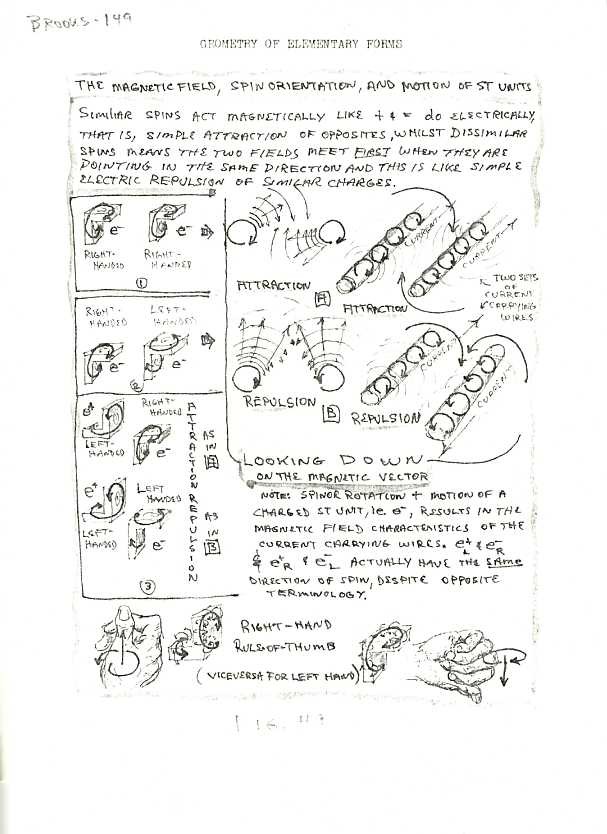 BROOKS-149
GEOMETRY OF ELEMENTARY FORMS
THE MAGNETIC FIELD, SPIN ORIENTATION, AND MOTION OF ST UNITS
SIMILIAR SPINS ACT MAGNETICALLY LIKE + & = do ELECTRICALLY,
THAT IS, SIMPLE ATTRACTION OF OPPOSITES, WHILST DISSIMILAR
SPINS MEANS THE TWO FIELDS MEET FIRST WHEN THEY ARE
POINTING IN THE SAME DIRECTION AND THIS IS LIKE SIMPLE
ELECTRIC REPULSION OF SIMILAR CHARGES.
e⁻ e⁻
RIGHT-HANDED
RIGHT-HANDED
1
RIGHT-HANDED
LEFT-HANDED
e⁻ e⁻
2
e⁺
LEFT-HANDED
RIGHT-HANDED
e⁻
ATTRACTION
AS IN A
e⁺
LEFT-HANDED
LEFT HANDED
e⁻
REPULSION
AS IN B
3
ATTRACTION
A
ATTRACTION
CURRENT
CURRENT
TWO SETS
OF
CURRENT
CARRYING
WIRES
REPULSION
B
REPULSION
CURRENT
CURRENT
LOOKING DOWN
ON THE MAGNETIC VECTOR
NOTE: SPINOR ROTATION + MOTION OF A
CHARGED ST UNIT, ie. e⁻, RESULTS IN THE
MAGNETIC FIELD CHARACTERISTICS OF THE
CURRENT CARRYING WIRES. e⁺L & e⁻R
& e⁺R & e⁻L ACTUALLY HAVE THE SAME
DIRECTION OF SPIN, DESPITE OPPOSITE
TERMINOLOGY.
RIGHT-HAND
RULE-OF-THUMB
(VICEVERSA FOR LEFT HAND)